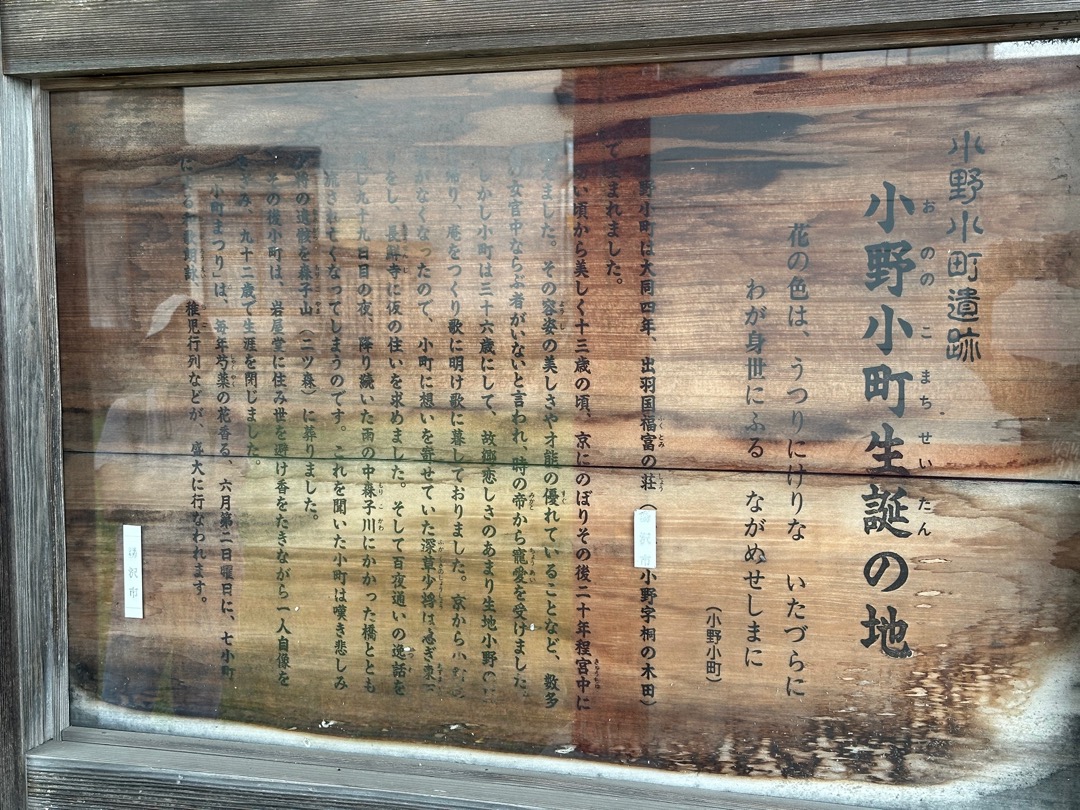 小野小町遺跡
小野小町生誕の地
おののこまちせいたん
花の色は、うつりにけりな いたづらに
わが身世にふる ながめせしまに
(小野小町)
野小町は大同四年、出羽国福富の荘(湯沢市小野字桐の木田)
て生まれました。
い頃から美しく十三歳の頃、京にのぼりその後二十年程宮中に
ました。その容姿の美しさや才能の優れていることなど、数多
の女官中ならぶ者がいないと言われ、時の帝から寵愛を受けました。
しかし小町は三十六歳にして、故郷恋しさのあまり生地小野の
帰り、庵をつくり歌に明け歌に暮しておりました。京から
がなくなったので、小町に想いを寄せていた深草少将は急ぎ東
りをし、長鮮寺に仮の住いを求めました。そして百夜通いの逸話を
じ九十九日目の夜、降り続いた雨の中森子川にかかった橋ととも
流されて亡くなってしまうのです。これを聞いた小町は嘆き悲しみ
将の遺骸を森子山(二ツ森)に葬りました。
その後小町は、岩屋堂に住み世を避け香をたきながら一人自像を
きざみ、九十二歳で生涯を閉じました。
「小町まつり」は、毎年芍薬の花香る、六月第二日曜日に、七小町
による和歌朗詠、稚児行列などが、盛大に行なわれます。
湯沢市